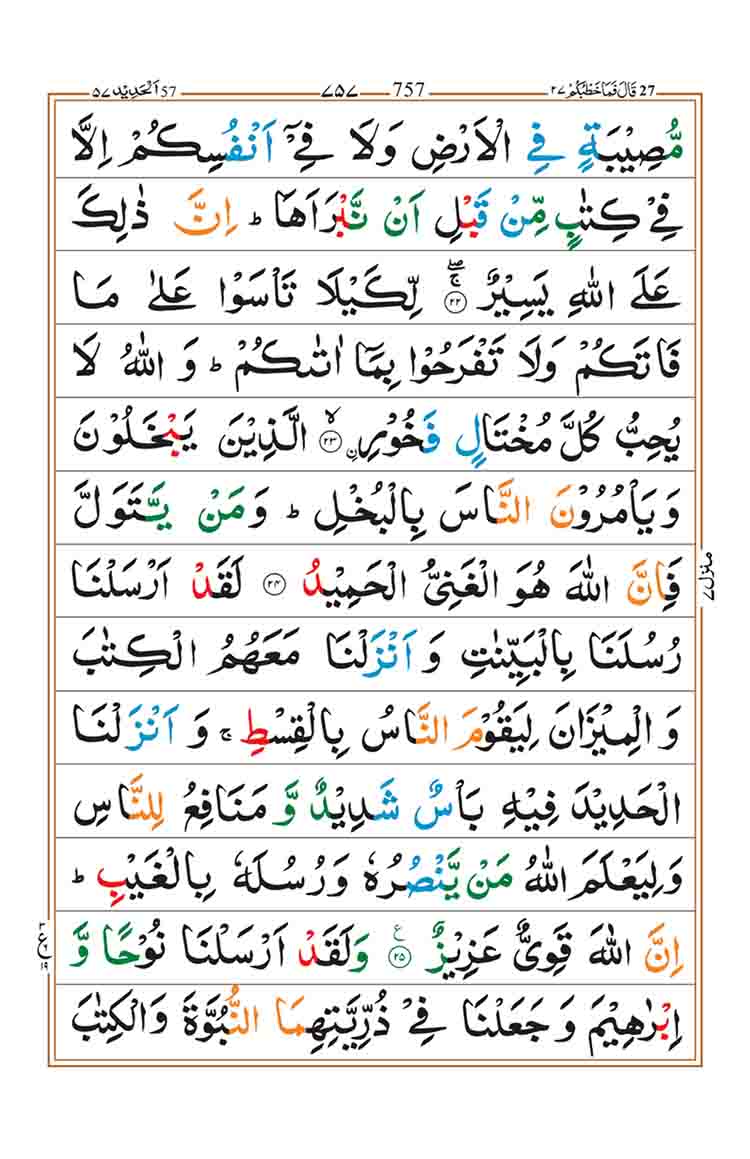 27 قَالَ فَمَا خَطْبُكُمْ ٢٧ 757 ٧٥٧ 57 اَلْحَدِيْد ٥٧
مُّصِيْبَةٍ فِي الْاَرْضِ وَلَا فِيْۤ اَنْفُسِكُمْ اِلَّا
فِيْ كِتٰبٍ مِّنْ قَبْلِ اَنْ نَّبْرَاَهَا ؕ اِنَّ ذٰلِكَ
عَلَى اللّٰهِ يَسِيْرٌ ۖۚ ٢٢ لِّكَيْلَا تَاْسَوْا عَلٰى مَا
فَاتَكُمْ وَلَا تَفْرَحُوْا بِمَاۤ اٰتٰىكُمْ ؕ وَ اللّٰهُ لَا
يُحِبُّ كُلَّ مُخْتَالٍ فَخُوْرِ ۙ ٢٣ ن الَّذِيْنَ يَبْخَلُوْنَ
وَيَاْمُرُوْنَ النَّاسَ بِالْبُخْلِ ؕ وَمَنْ يَّتَوَلَّ
فَاِنَّ اللّٰهَ هُوَ الْغَنِيُّ الْحَمِيْدُ ٢٤ لَقَدْ اَرْسَلْنَا
رُسُلَنَا بِالْبَيِّنٰتِ وَ اَنْزَلْنَا مَعَهُمُ الْكِتٰبَ
وَ الْمِيْزَانَ لِيَقُوْمَ النَّاسُ بِالْقِسْطِ ۚ وَ اَنْزَلْنَا
الْحَدِيْدَ فِيْهِ بَاْسٌ شَدِيْدٌ وَّ مَنَافِعُ لِلنَّاسِ
وَلِيَعْلَمَ اللّٰهُ مَنْ يَّنْصُرُهٗ وَ رُسُلَهٗ بِالْغَيْبِ ؕ
اِنَّ اللّٰهَ قَوِيٌّ عَزِيْزٌ ٢٥ ع وَلَقَدْ اَرْسَلْنَا نُوْحًا وَّ
اِبْرٰهِيْمَ وَ جَعَلْنَا فِيْ ذُرِّيَّتِهِمَا النُّبُوَّةَ وَالْكِتٰبَ
منزل ٧
ع